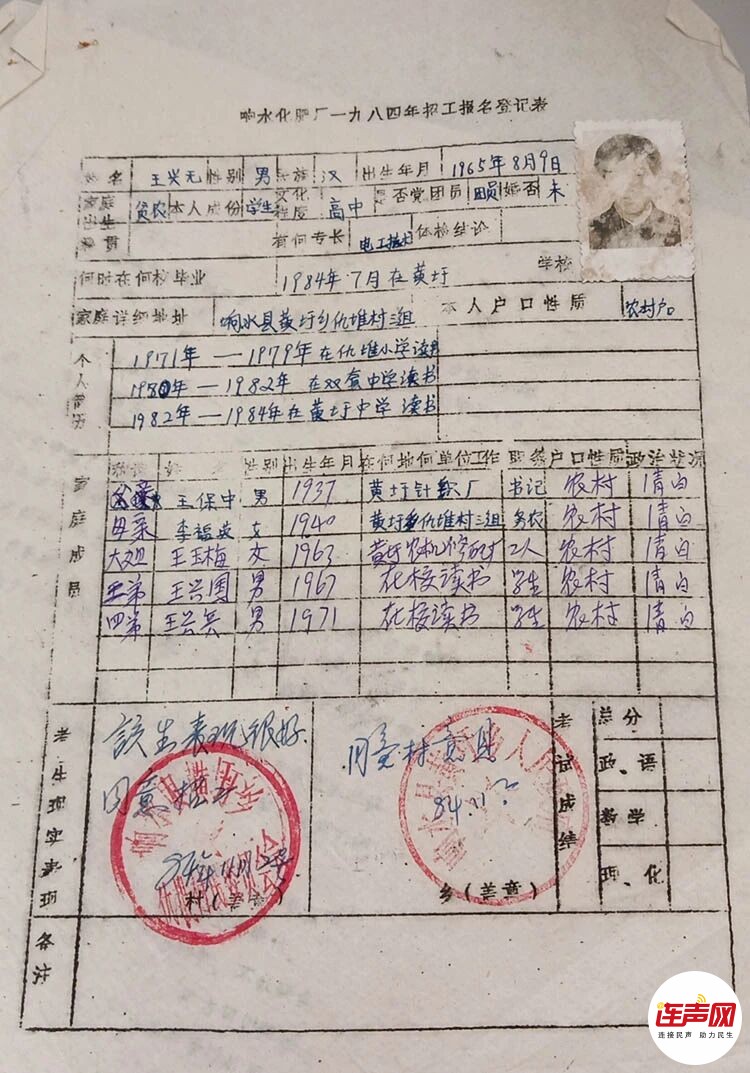 响水化肥厂一九八四年招工报名登记表
姓名 王兴无 性别 男 民族 汉 出生年月 1965年8月9日
家庭出生 贫农 本人成份 学生 文化程度 高中 是否党团员 团员 婚否 未
籍贯 有何专长 电工技术 体检结论
何时在何校毕业 1984年7月在黄圩 学校
家庭详细地址 响水县黄圩乡仇堆村三组 本人户口性质 农村户
个人简历
1971年—1979年在仇堆小学读书
1980年—1982年在双套中学读书
1982年—1984年在黄圩中学读书
家庭成员
称谓 姓名 性别 出生年月 在何地何单位工作 职务 户口性质 政治状况
父亲 王保中 男 1937 黄圩针织厂 书记 农村 清白
母亲 李福英 女 1940 黄圩乡仇堆村三组 务农 农村 清白
大姐 王玉梅 女 1963 黄圩农机修配厂 工人 农村 清白
三弟 王兴国 男 1967 在校读书 学生 农村 清白
四弟 王兴兵 男 1971 在校读书 学生 农村 清白
考生现实表现
该生表现很好
同意
84年11月2号
村(盖章)
同意村意见
84.11
乡(盖章)
考试成绩
总分
政、语
数学
理、化
备注
连声网
连接民声 助力民生